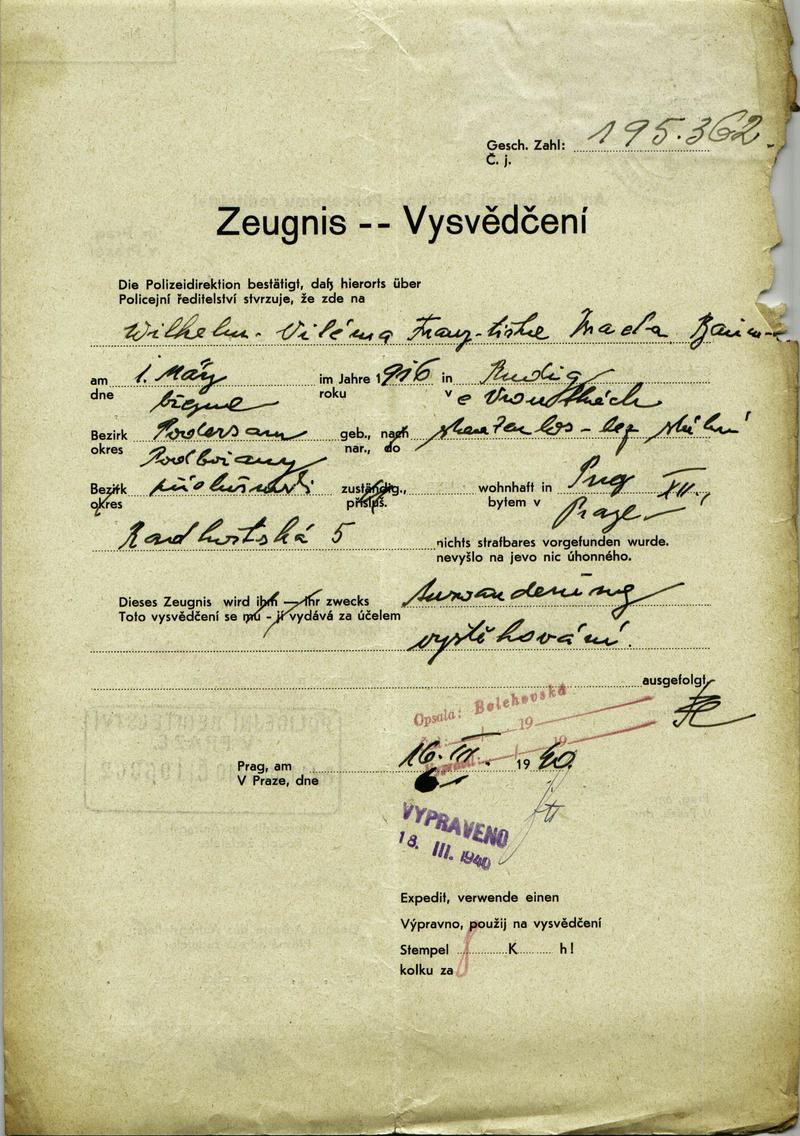 Gesch. Zahl: 195.362
Č. j.
Zeugnis -- Vysvědčení
Die Polizeidirektion bestätigt, daß hierorts über
Policejní ředitelství stvrzuje, že zde na
Wilhelm - Viléma
am 1. März im Jahre 1916 in Rudig
dne března roku v e Vroutkách
Bezirk Podersam geb., nach staatenlos - bez státní
okres Podbořany nar., do
Bezirk příslušnosti zuständig., wohnhaft in Prag XII.,
okres přísluš. bytem v Praze
Radhošťská 5 nichts strafbares vorgefunden wurde.
nevyšlo na jevo nic úhonného.
Dieses Zeugnis wird ihm — ihr zwecks Auswanderung
Toto vysvědčení se mu - jí vydává za účelem
vystěhování.
ausgefolgt.
Opsala: Bolehovská
19
19
Prag, am 16. III. 1940
V Praze, dne
VYPRAVENO
18. III. 1940
Expedit, verwende einen
Výpravno, použij na vysvědčení
Stempel K h!
kolku za